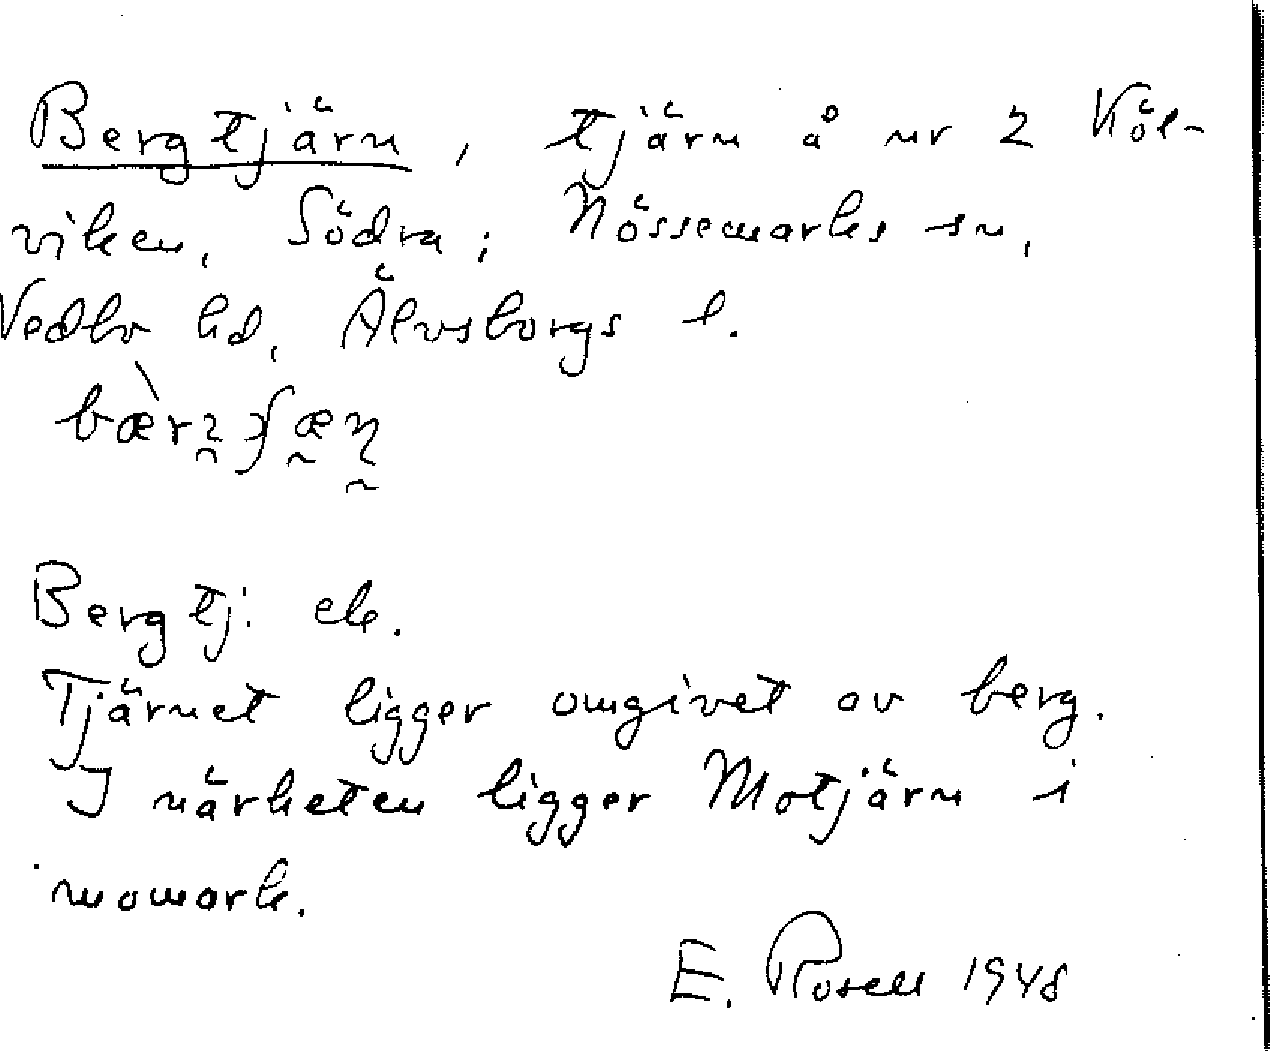 Bergtjärn, tjärn å nr 2 Köl-
viken, Södra; Nössemarks sn,
Vedbo hd, Älvsborgs l.
Bergtj: ek.
Tjärnet ligger omgivet av berg.
I närheten ligger Motjärn i
momark.
E. Rosell 1948